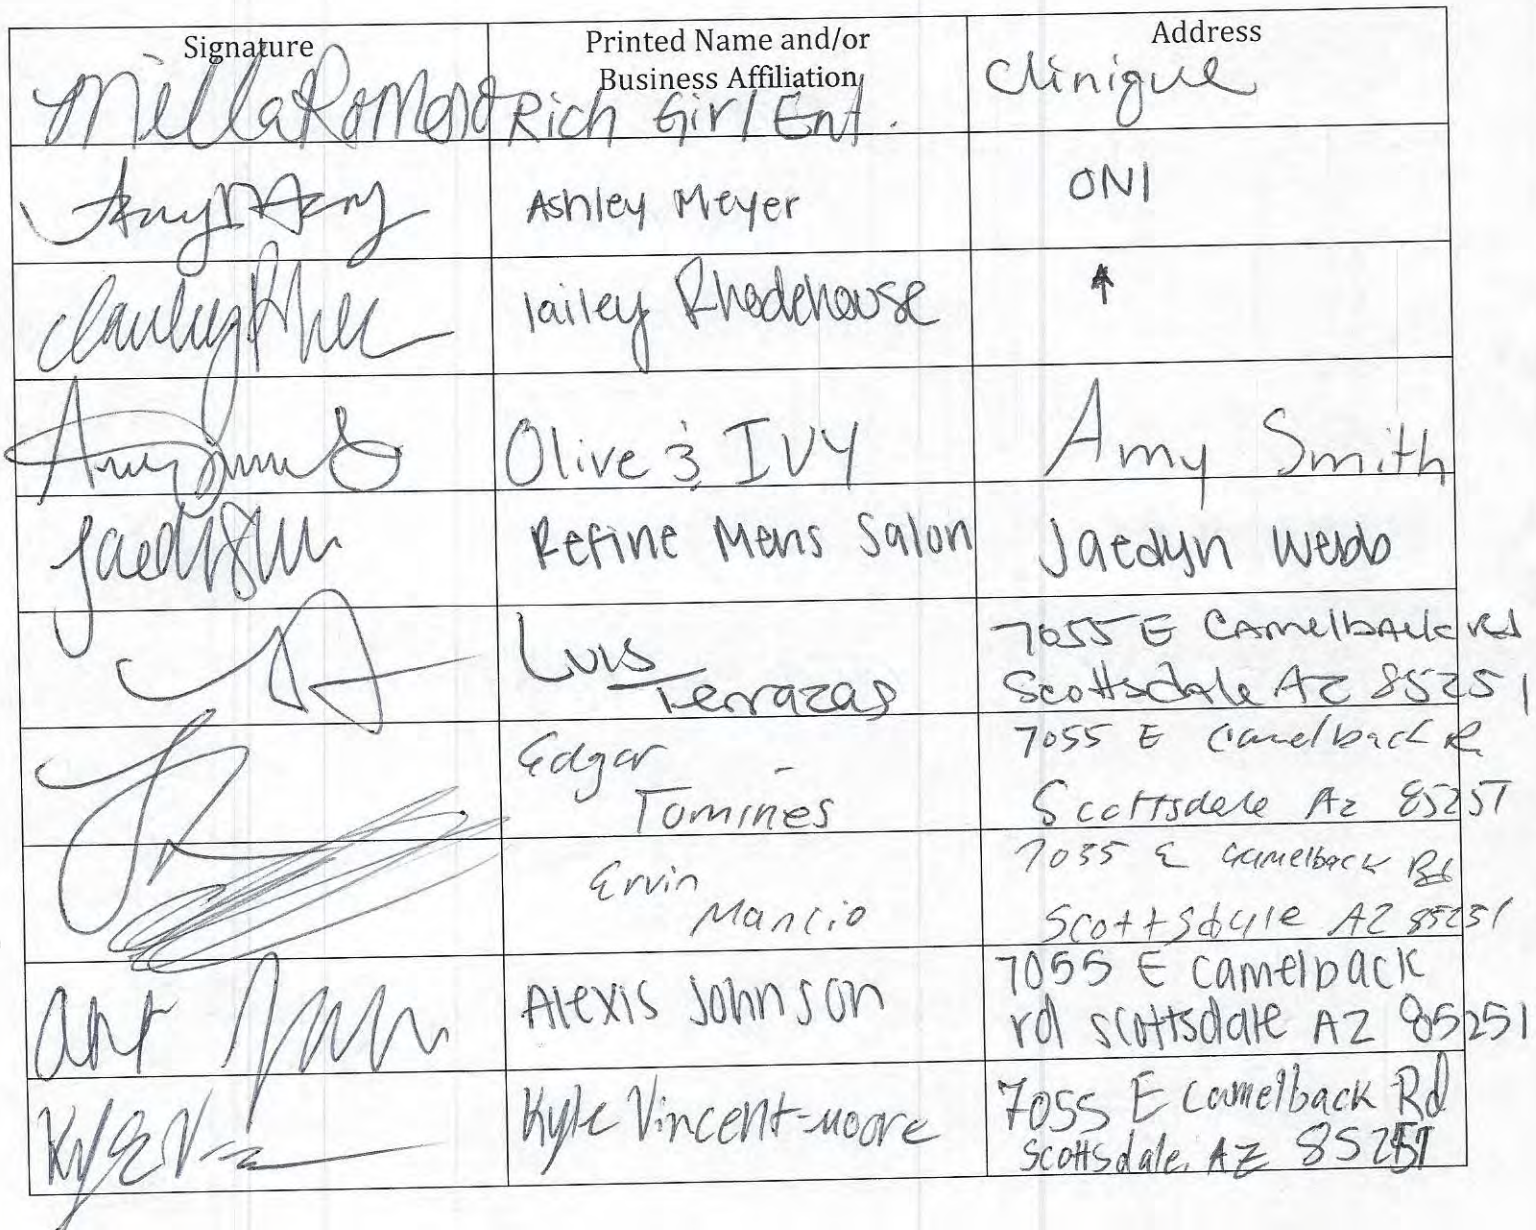 Signature
Printed Name and/or
Business Affiliation
Address
Milla Romero
Rich Girl Ent.
Clinique
Ashley Meyer
ONI
lailey Rhodehouse
↑
Olive & IVY
Amy Smith
Refine Mens Salon
Jaedyn Webb
Luis
Terrazas
7055 E CAmelbAck Rd
Scottsdale AZ 85251
Edgar
Tomines
7055 E Camelback R
Scottsdale Az 85251
Ervin
Mancio
7055 E Camelback Rd
Scottsdale AZ 85251
Alexis Johnson
7055 E camelback
rd scottsdale AZ 85251
Kyle V
Kyle Vincent-Moore
7055 E Camelback Rd
Scottsdale, AZ 85251